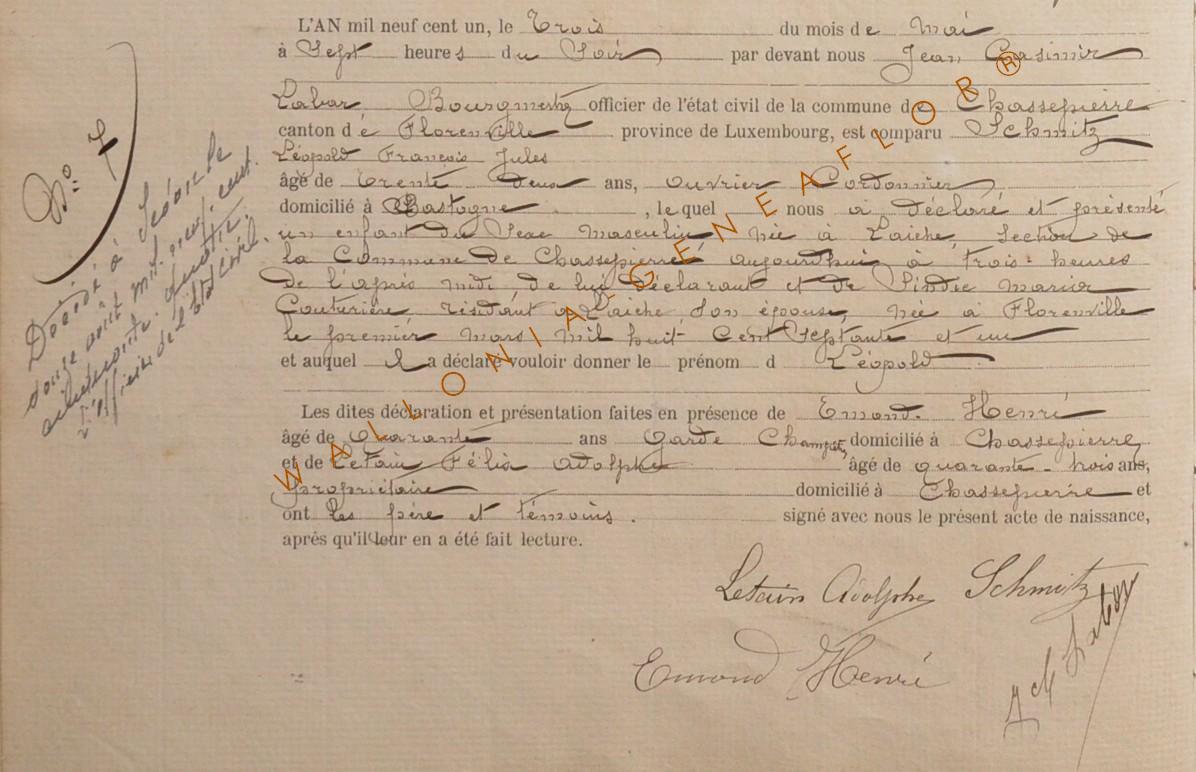 L'AN mil neuf cent un, le Trois du mois de Mai
à Sept heures du Soir par devant nous Jean Casimir
Labar Bourgmestre officier de l'état civil de la commune de Chassepierre
canton dé Florenville province de Luxembourg, est comparu Schmitz
Léopold François Jules
âgé de trente deux ans, ouvrier Cordonnier
domicilié à Bastogne, le quel nous a déclaré et présenté
un enfant du Sexe masculin, née à Laiche, Section de
la Commune de Chassepierre aujourd'hui à trois heures
de l'après midi, de lui déclarant et de Pindie Maria
Couturière, résidant à Laiche, son épouse, née à Florenville
le premier mars mil huit Cent Septante et un
et auquel il a déclaré vouloir donner le prénom d Léopold
Les dites déclaration et présentation faites en présence de Emond Henri
âgé de quarante ans Garde Champêt, domicilié à Chassepierre,
et de Letain Félix Adolphe âgé de quarante-trois ans,
propriétaire domicilié à Chassepierre et
ont les père et témoins. signé avec nous le présent acte de naissance,
après qu'il leur en a été fait lecture.
Letain Adolphe Schmitz
Emond Henri
J C Labar
No 7
Décédé à
douze août mil neuf cent
quatre
l'officier de l'état civil.
WALLONIA-GENEAFLOR®